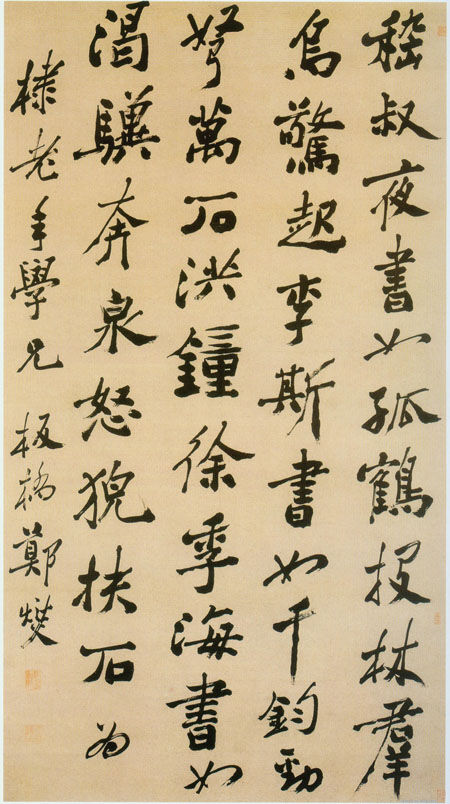 嵇叔夜書如孤鶴投林群
烏驚起李斯書如千鈞勁
弩萬石洪鐘徐季海書如
渴驥奔泉怒猊扶石為
棣老年學兄 板橋鄭燮